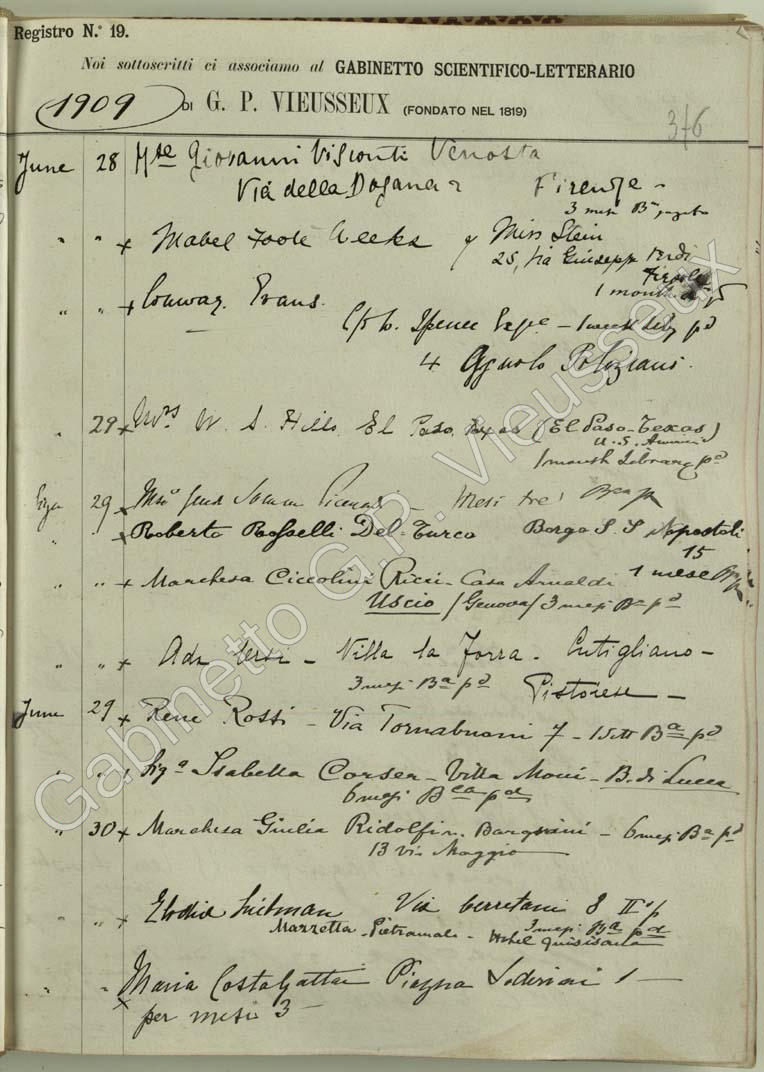 Registro N.° 19.
Noi sottoscritti ci associamo al GABINETTO SCIENTIFICO-LETTERARIO
1909 DI G. P. VIEUSSEUX (FONDATO NEL 1819)
376
June 28 Mse Giovanni Visconti Venosta
Via della Dogana 2 Firenze -
3 mesi Ba
" " x Mabel Foote Weeks Miss Stein
25, Via Giuseppe Verdi
Fiesole
1 month
" " x Conway Evans.
1 month Liby pd
4 Agnolo Poliziano.
" 29 x Mrs W. S. Hills El Paso, Texas (El Paso-Texas)
U.S. America
1 month Library pd
29 x Mesi tre
" x Roberto Rosselli Del-Turco Borgo S. S Apostoli
15
" " x Marchesa Ciccolini Ricci - Casa Arnaldi 1 mese
Uscio (Genova) 3 mesi Ba pd
" " x Villa la Torre - Cutigliano -
3 mesi Ba pd Pistoiese -
June 29 x René Rossi - Via Tornabuoni 7 - Ba pd
" " x Siga Isabella Corsea - Villa - B. di Lucca
6 mesi Bca pd
" 30 x Marchesa Giulia Ridolfi n. - 6 mesi Ba pd
13 via Maggio
" x Via Cerretani 8 II° p
Pietramala - Hotel Quisisana 3 mesi Ba pd
" x Maria Piazza Soderini 1 -
per mesi 3 -
Gabinetto G.P. Vieusseux